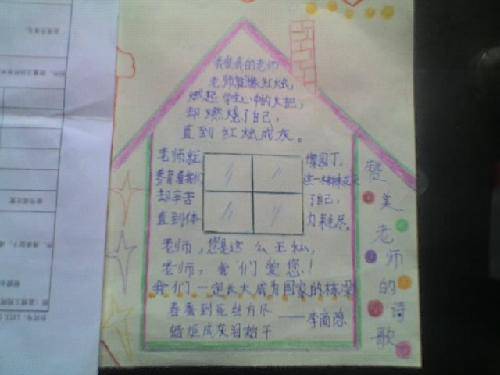 我爱我的老师
老师就像红烛,
燃起学生心中的火把,
却燃烧了自己,
直到红烛成灰。
老师就 像园丁,
培育着我们 这一棵棵花朵
却辛苦 了自己,
直到体 力耗尽。
老师,您是这么无私,
老师,我们爱您!
我们一定长大成为国家的栋梁
春蚕到死丝方尽
蜡炬成灰泪始干 ——李商隐
赞美老师的诗歌